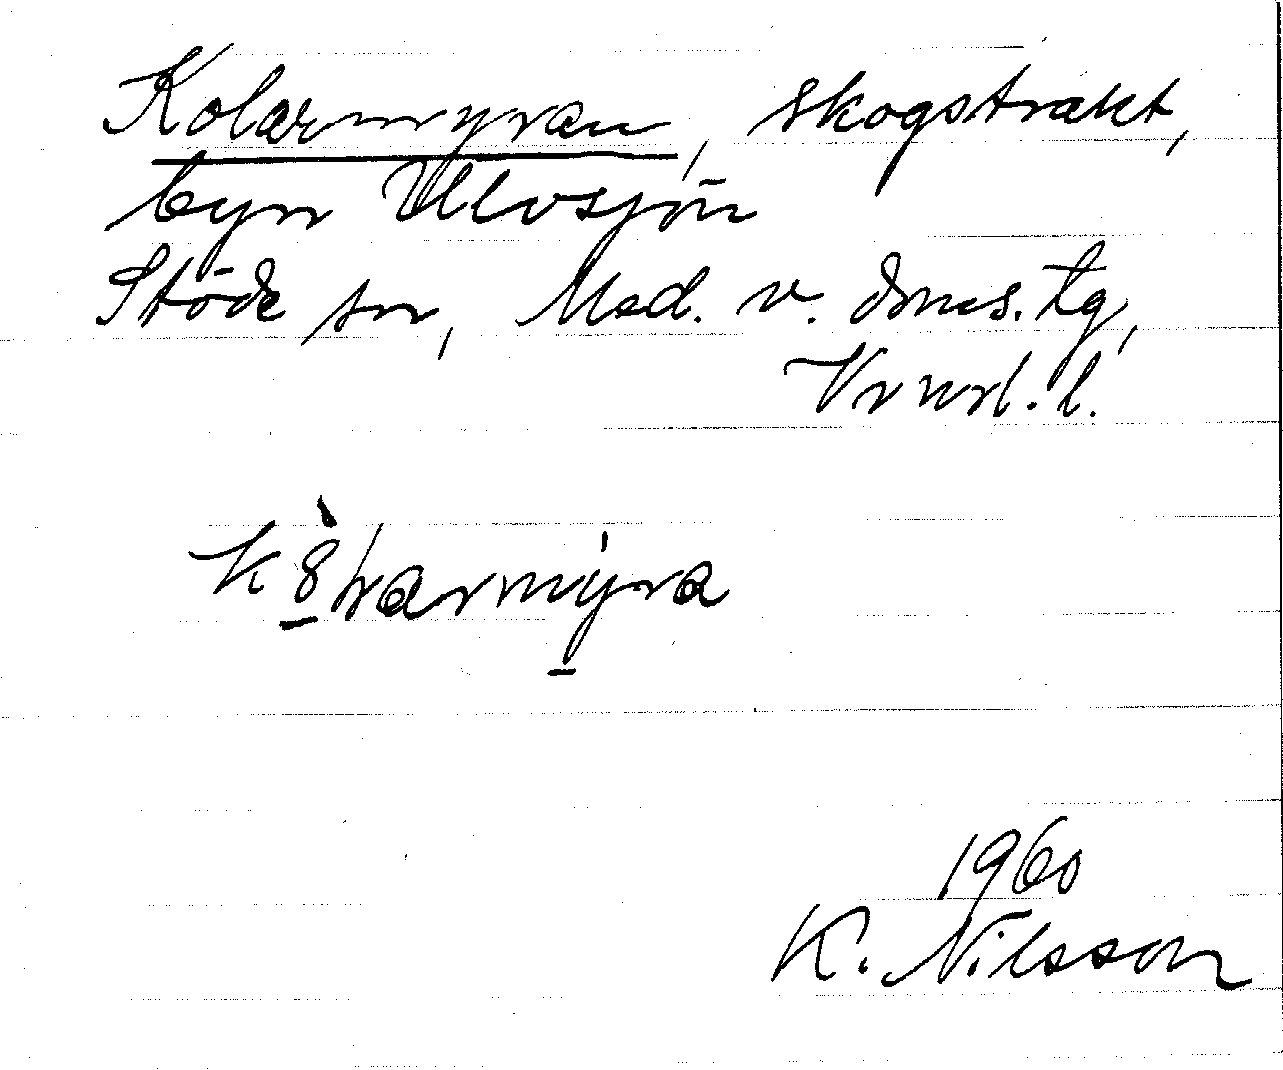 Kolarmyran, skogstrakt,
byn Ulvsjön
Stöde sn, Med. v. dms. tg,
Vrnrl. l.
1960
K. Nilsson